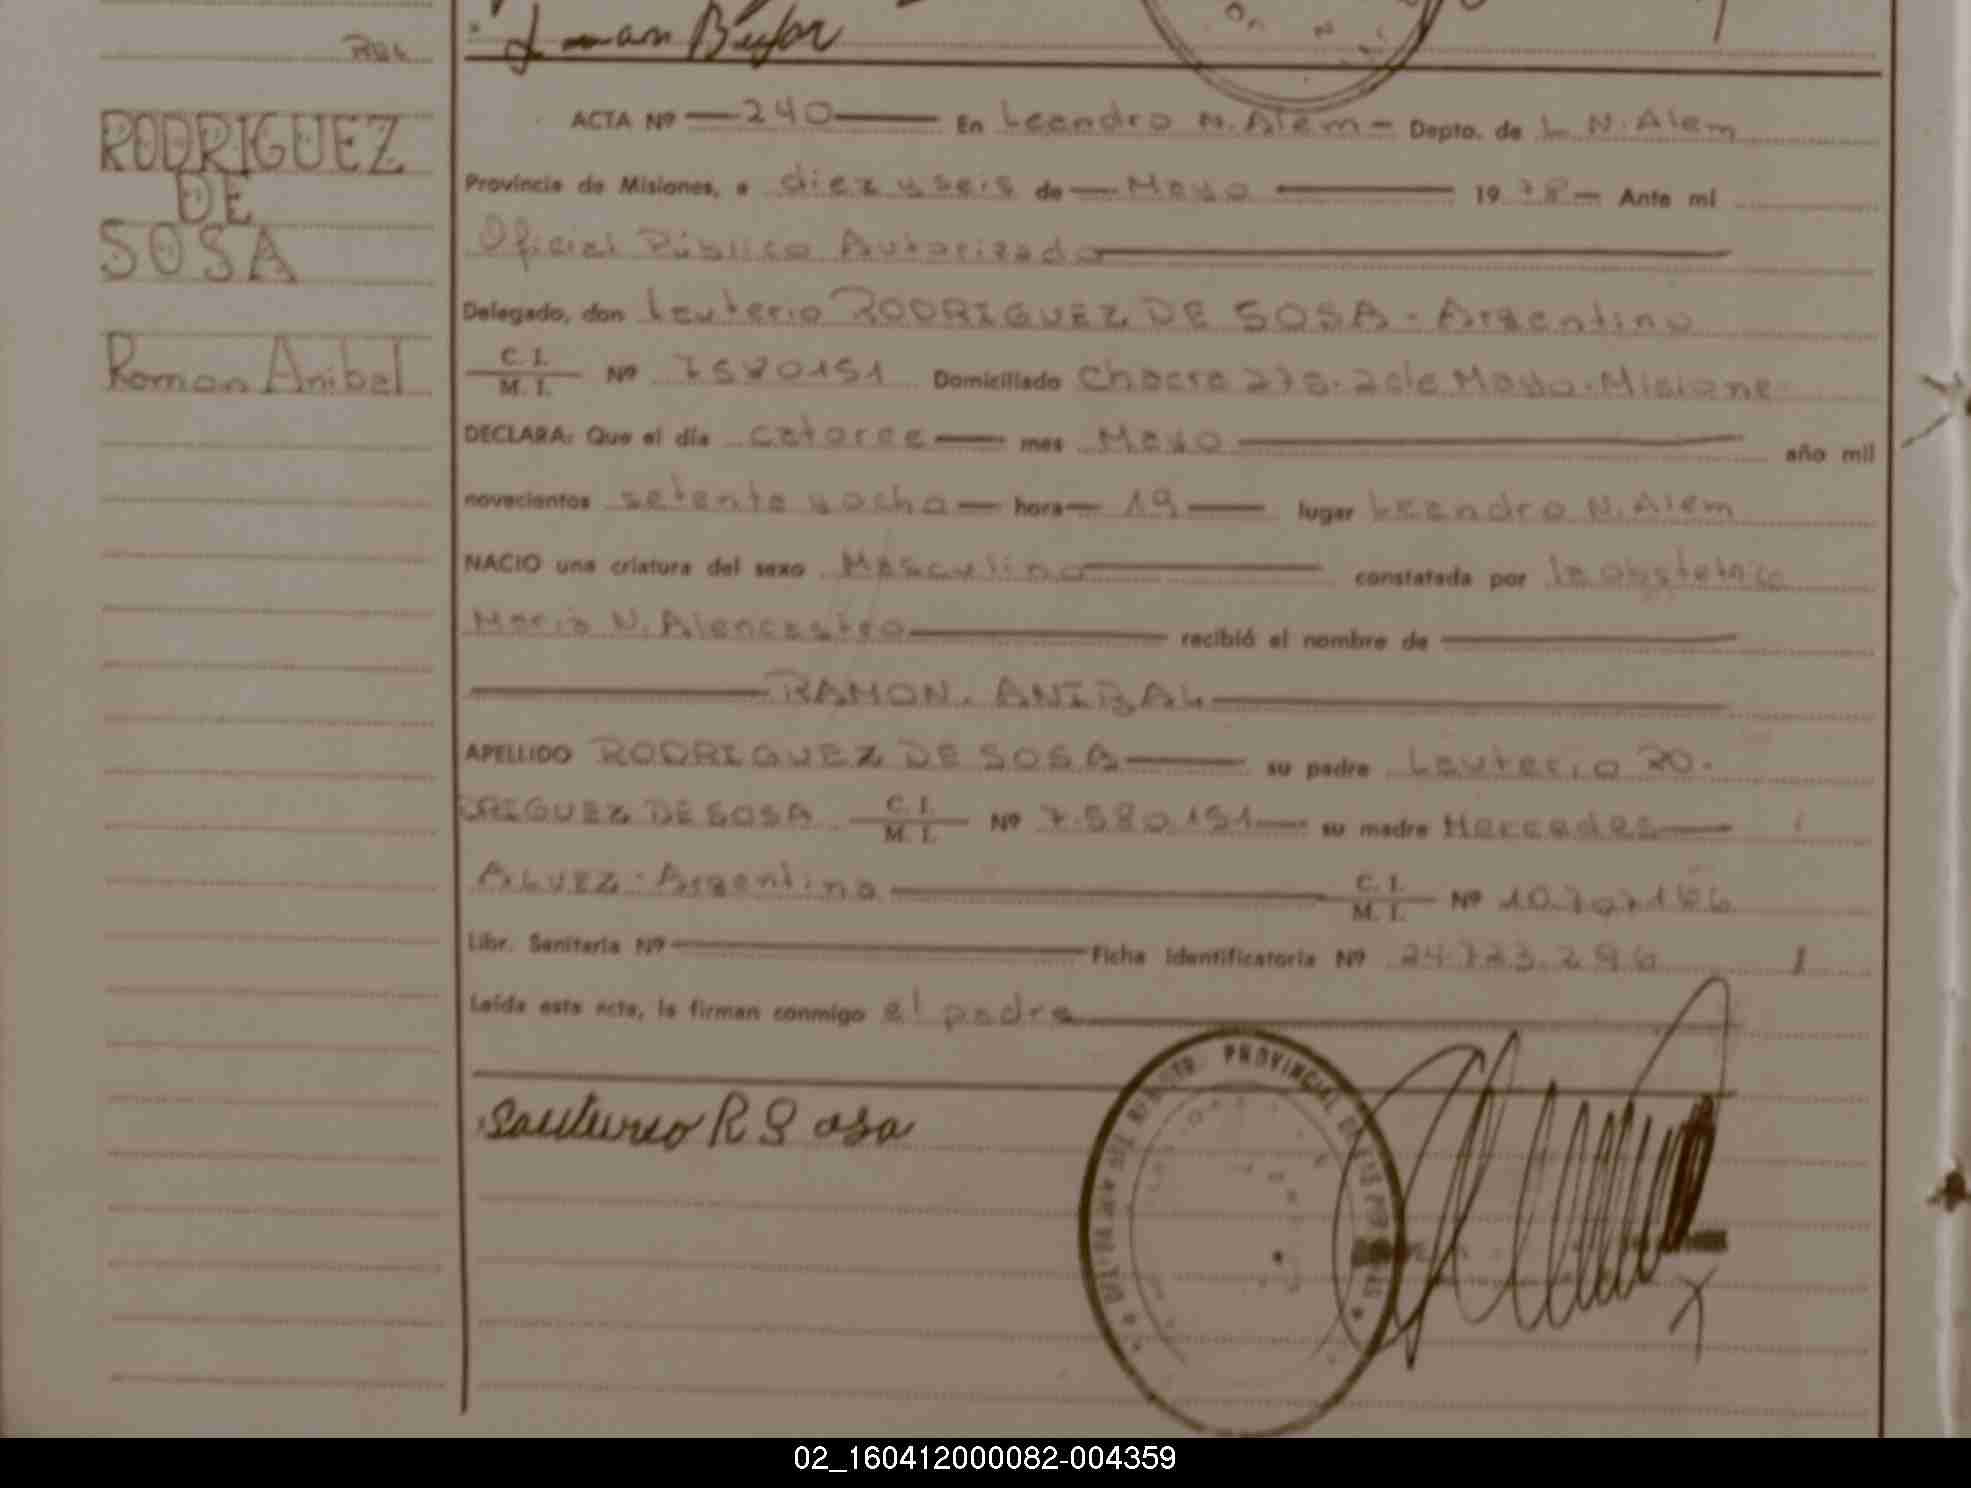 RODRIGUEZ
DE
SOSA
Ramon Anibal
ACTA Nº 240 En Leandro N. Alem - Depto. de L. N. Alem
Provincia de Misiones, a diez y seis de Mayo 19 78 Ante mi
Oficial Público Autorizado
Delegado, don Leuterio RODRIGUEZ DE SOSA - Argentino
C. I. / M. I. Nº 7580151 Domiciliado Chacra 278. 2 de Mayo. Misione
DECLARA: Que el día catorce mes Mayo año mil
novecientos setenta y ocho hora 19 lugar Leandro N. Alem
NACIO una criatura del sexo Masculino constatada por la obstetrica
Maria N. Alencastro recibió el nombre de
RAMON. ANIBAL
APELLIDO RODRIGUEZ DE SOSA su padre Leuterio RO-
DRIGUEZ DE SOSA C. I. / M. I. Nº 7.580.151 su madre Mercedes
ALVEZ - Argentina C. I. / M. I. Nº 10.707.166
Libr. Sanitaria Nº Ficha Identificatoria Nº 24.723.296
Leída esta acta, la firman conmigo el padre
R S osa
PROVINCIAL DE LAS PERSONAS
02_160412000082-004359